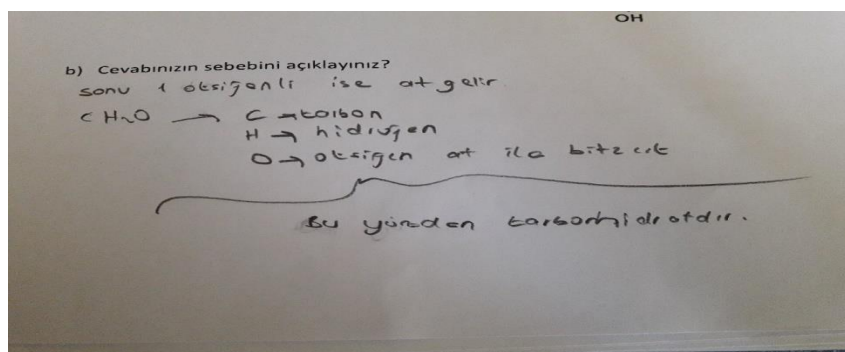 OH
b) Cevabınızın sebebini açıklayınız?
sonu 1 oksijenli ise at gelir.
CH₂O → C → karbon
H → hidrojen
O → oksijen at ile bitecek
Bu yüzden karbonhidratdır.